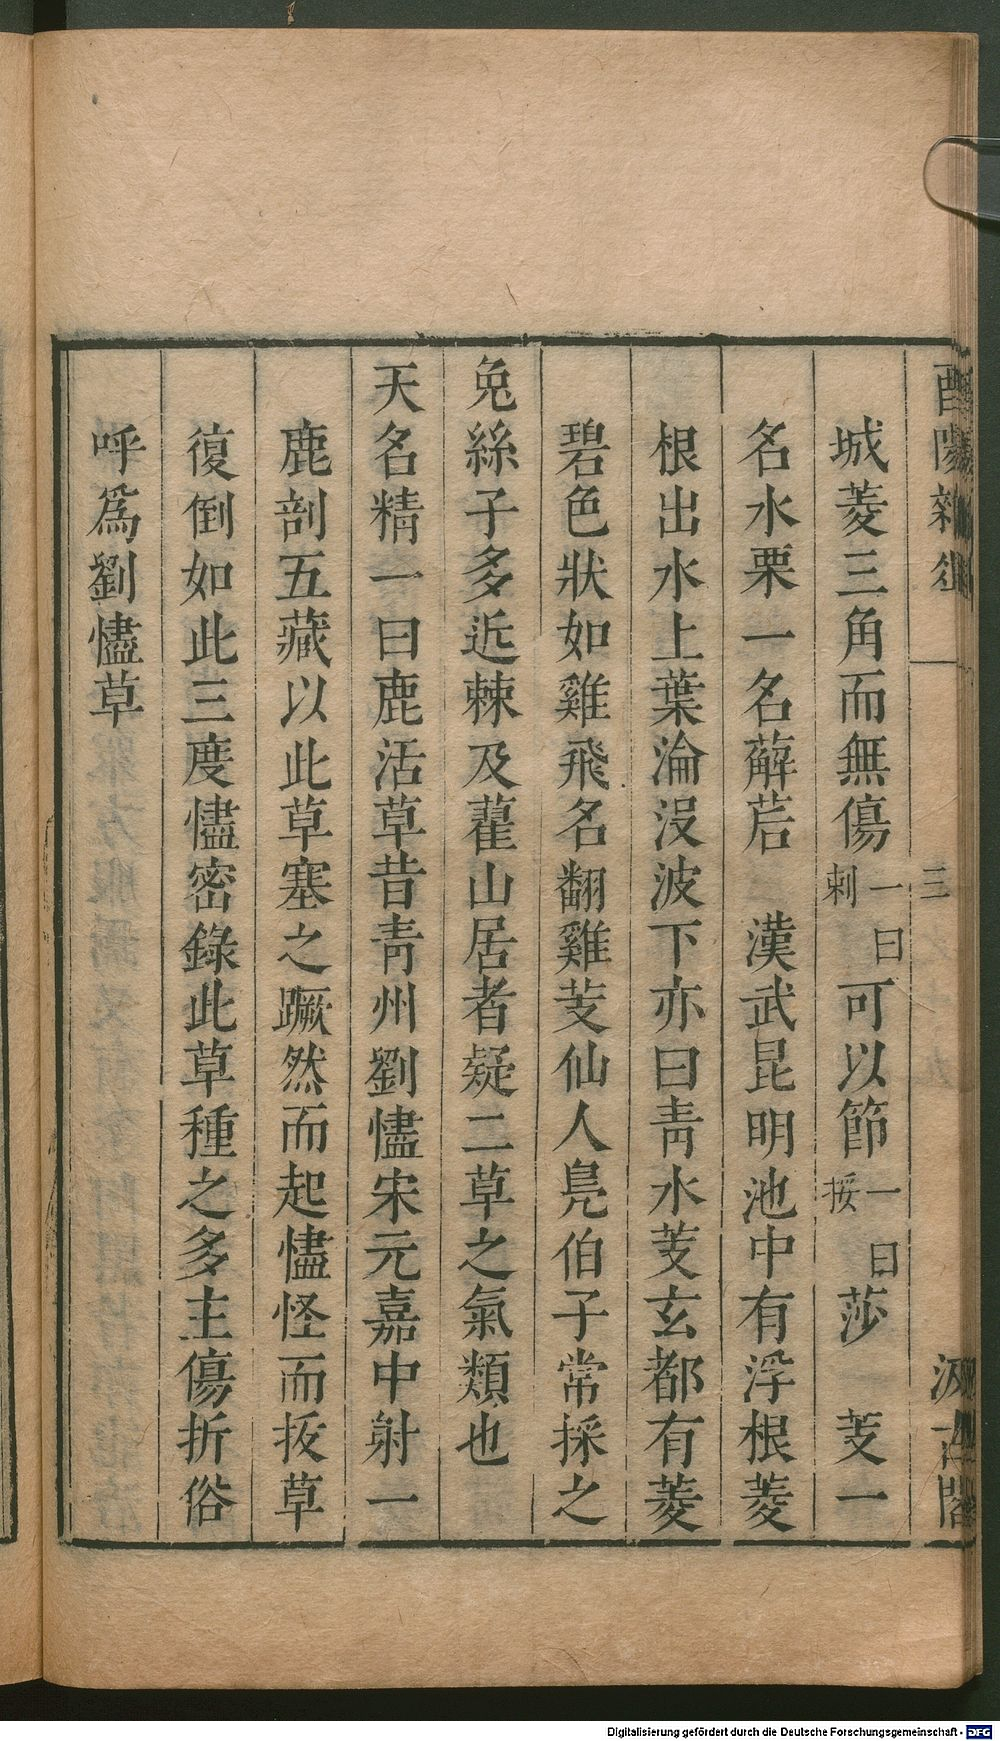 酉陽雜俎
三
汲古閣
城菱三角而無傷一曰刺可以節一曰挼莎　芰一
名水栗一名薢茩　漢武昆明池中有浮根菱
根出水上葉淪沒波下亦曰靑水芰玄都有菱
碧色狀如雞飛名翻雞芰仙人鳧伯子常採之
兔絲子多近棘及藋山居者疑二草之氣類也
天名精一曰鹿活草昔靑州劉㶳宋元嘉中射一
鹿剖五藏以此草塞之蹶然而起㶳怪而拔草
復倒如此三度㶳密錄此草種之多主傷折俗
呼爲劉㶳草
Digitalisierung gefördert durch die Deutsche Forschungsgemeinschaft - DFG